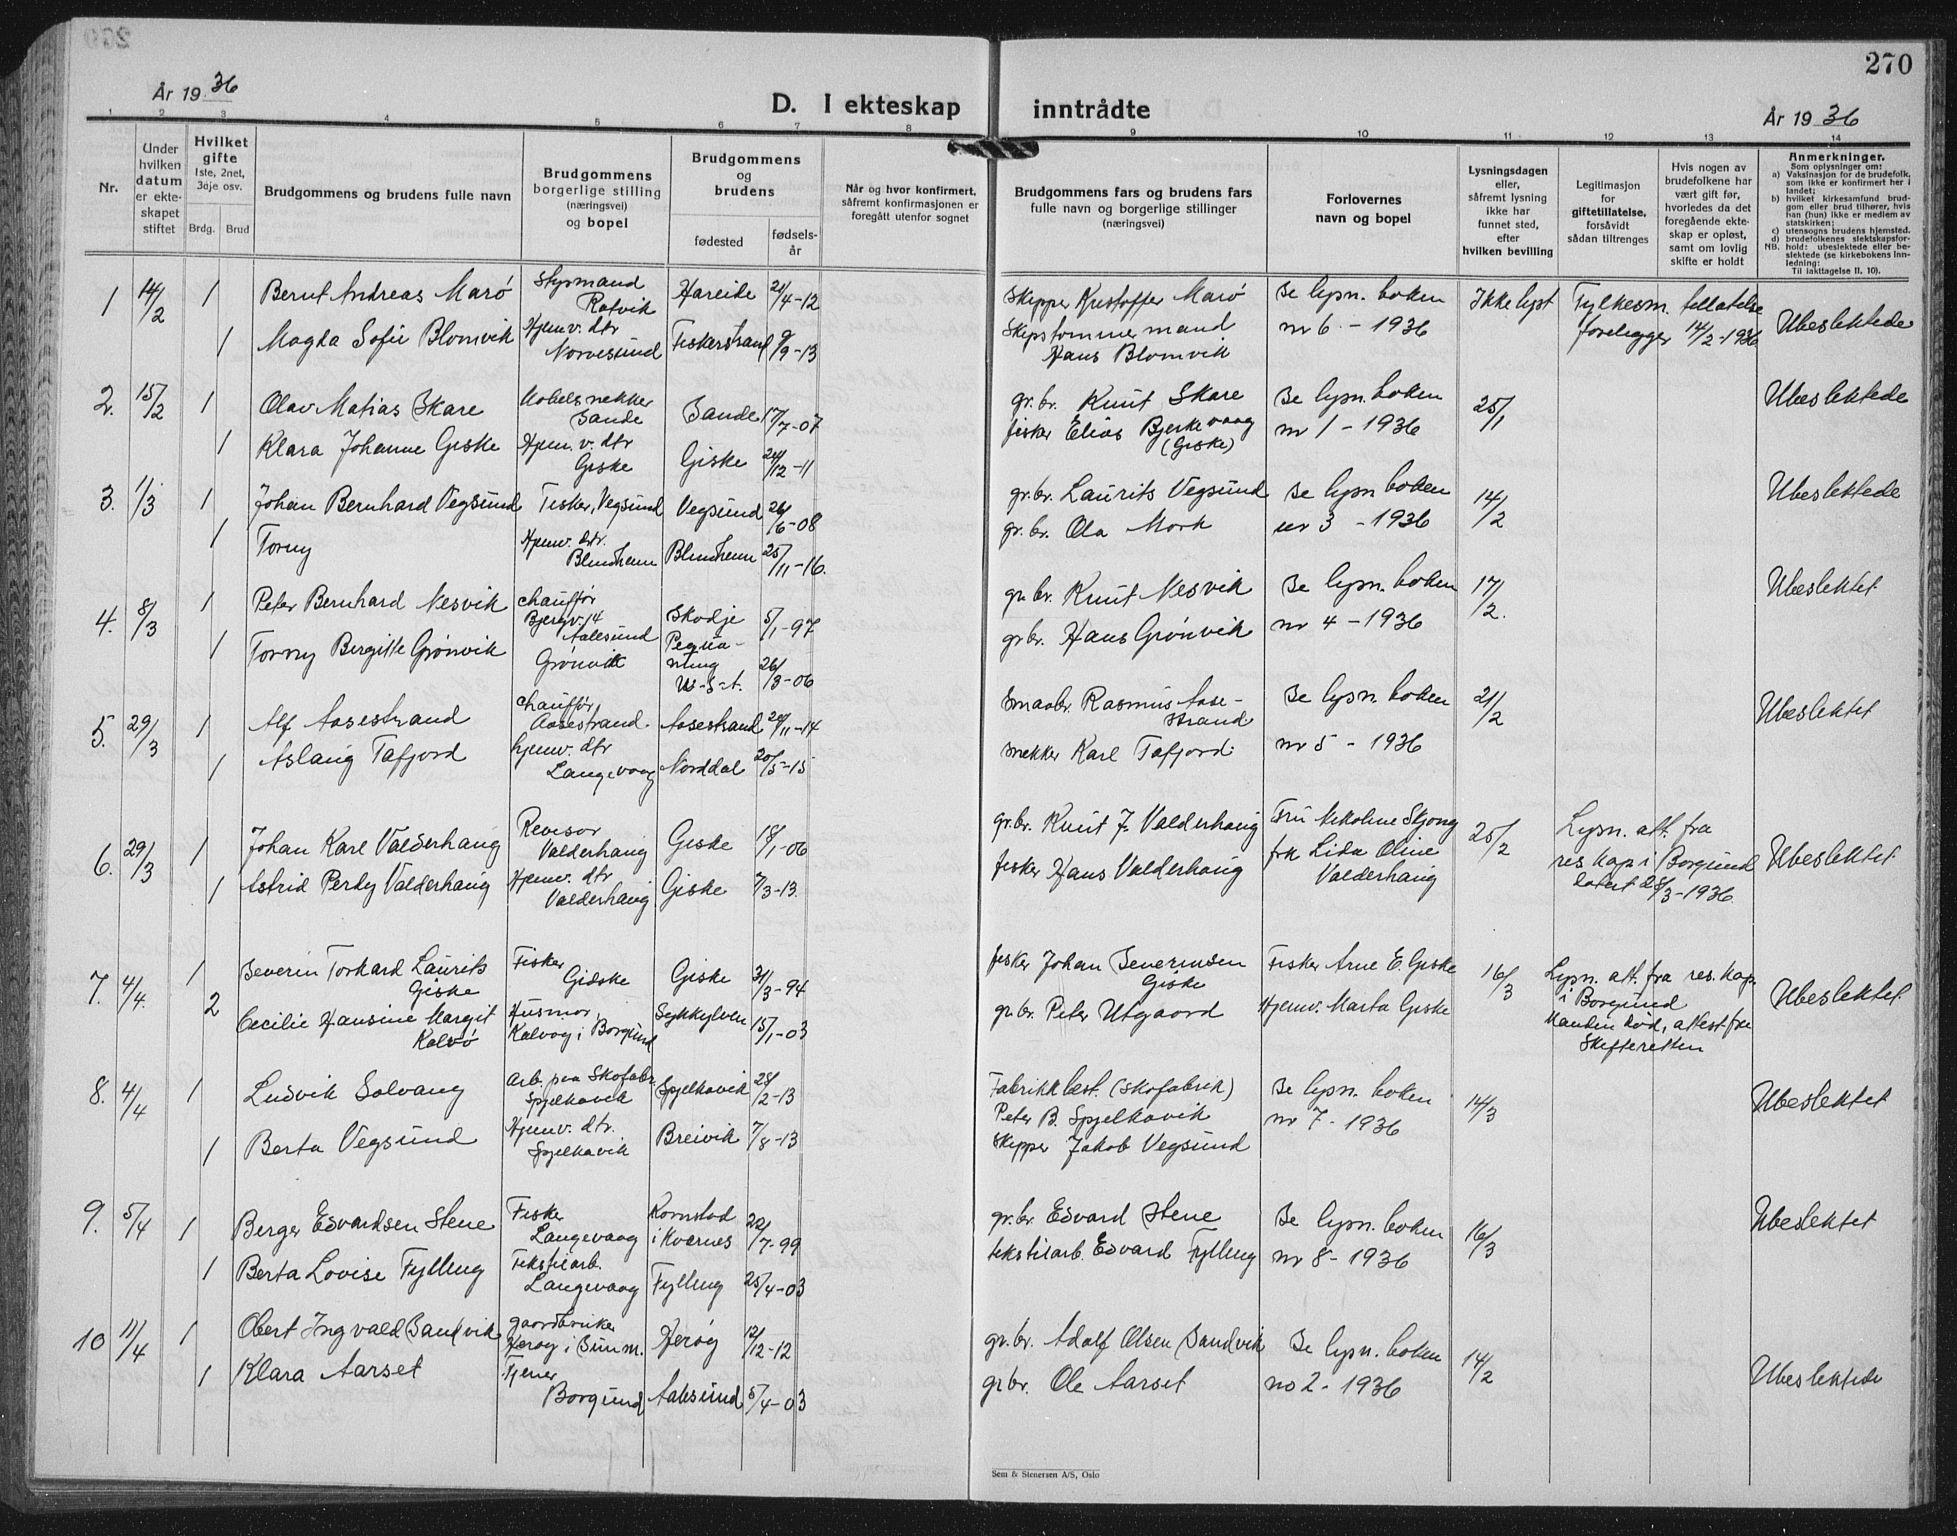 270
År 1936
D. I ekteskap inntrådte
År 1936
1 2 3 4 5 6 7 8 9 10 11 12 13 14
Nr.
Under hvilken datum er ekte-skapet stiftet
Hvilket gifte
1ste, 2net, 3dje osv.
Brdg. Brud
Brudgommens og brudens fulle navn
Brudgommens borgerlige stilling (næringsvei) og bopel
Brudgommens og brudens
fødested
fødsels-år
Når og hvor konfirmert, såfremt konfirmasjonen er foregått utenfor sognet
Brudgommens fars og brudens fars fulle navn og borgerlige stillinger (næringsvei)
Forlovernes navn og bopel
Lysningsdagen eller, såfremt lysning ikke har funnet sted, efter hvilken bevilling
Legitimasjon for giftetillatelse, forsåvidt sådan tiltrenges
Hvis nogen av brudefolkene har vært gift før, hvorledes da det foregående ekte-skap er opløst, samt om lovlig skifte er holdt
Anmerkninger.
Som oplysninger om:
a) Vaksinasjon for de brudefolk, som ikke er konfirmert her i landet;
b) hvilket kirkesamfund brud-gom eller brud tilhører, hvis han (hun) ikke er medlem av statskirken;
c) utensogns brudens hjemsted.
d) brudefolkenes slektskapsfor-hold: ubeslektede eller be-slektede (se kirkebokens inn-ledning: Til iakttagelse II, 10).
NB.
1 14/2 1 Bernt Andreas Marø Styrmand Ratvik Hareide 21/4-12 Skipper Kristoffer Marø Se lysn. boken Ikke lyst Fylkesm. tillatelse Ubeslektede
1 Magda Sofie Blomvik Hjemv. dtr Norvesund Fiskerstrand 9/9-13 Skipstømmermand Hans Blomvik nr 6 - 1936 foreligger 14/2-1936
2. 15/2 1 Olav Matias Skare Møbelsnekker Sande Sande 17/7-07 gr. br. Knut Skare Se lysn. boken 25/1 Ubeslektede
1 Klara Johanne Giske Hjem. v. dtr Giske Giske 24/12-11 fisker Elias Bjerkevaag (Giske) nr 1 - 1936
3. 1/3 1 Johan Bernhard Vegsund Fisker, Vegsund Vegsund 26/6-08 gr. br. Laurits Vegsund Se lysn boken 14/2 Ubeslektede
1 Torny Hjemv. dtr. Blindheim Blindheim 25/11-16. gr. br. Ola Mork nr 3 - 1936
4. 8/3 1 Peter Bernhard Nesvik chauffør Bjergv. 14 Aalesund Skodje 5/1-97 gr. br. Knut Nesvik Se lysn. boken 17/2. Ubeslektet
1 Torny Bergitte Grönvik Grönvik U-S-A. 26/3-06 gr br. Hans Grönvik nr 4 - 1936
5. 29/3 1 Alf Aasestrand chauffør Aasestrand Aasestrand 24/11-14 Smaabr. Rasmus Aase-strand Se lysn. boken 21/2 Ubeslektet
1 Aslaug Tafjord hjemv. dtr Langevaag Norddal 20/5-15 snekker Karl Tafjord nr 5 - 1936
6. 29/3 1 Johan Karl Valderhaug Revisor Valderhaug Giske 18/1-06 gr. br. Knut J. Valderhaug Fru Nikoline Skjong 25/2 Lysn. att. fra res kap i Borgund datert 28/3-1936 Ubeslektet
1 Astrid Perdy Valderhaug Hjemv. dtr Valderhaug Giske 7/3-13 fisker Hans Valderhaug frk Lida Oline Valderhaug
7. 4/4. 1 Severin Torkard Laurits Giske Fisker Gidske Giske 31/3-94 fisker Johan Severinsen Giske Fisker Arne E. Giske 16/3 Lysn. att. fra res. kap. i Borgund Ubeslektet
2 Cecilie Hansine Margit Kalvø Husmor, Kalvøy i Borgund Sykkylven 15/1-03 gr. br. Peter Utgaard Hjemv. Marta Giske Manden död, attest fra Skifteretten
8. 4/4 1 Ludvik Solvang Arb. paa Skofabr. Spjelkavik Spjelkavik 28/2-13 Fabrikkbest. (Skofabrik) Peter B. Spjelkavik Se lysn. boken 14/3 Ubeslektet
1 Berta Vegsund Hjemv. dtr. Spjelkavik Breivik 7/8-13 Skipper Jakob Vegsund nr 7 - 1936
9. 5/4 1 Berger Edvardsen Stene Fisker Langevaag Kornstad i Kvernes 22/7-99 gr. br. Edvard Stene Se lysn. boken 16/3 Ubeslektet
1 Berta Lovise Fylling Tekstilarb. Langevaag Fylling 25/4-03 tekstilarb. Edvard Fylling nr 8 - 1936
10 11/4 1 Obert Ingvald Sandvik gaardbruker Herøy i Sunm. Herøy 12/12-12 gr. br. Adolf Olsen Sandvik Se lysn. boken 14/2 Ubeslektede
1 Klara Aarset Tjener Borgund Aalesund 5/4-03 gr br. Ole Aarset no 2 - 1936
Sem & Stenersen A/S, Oslo